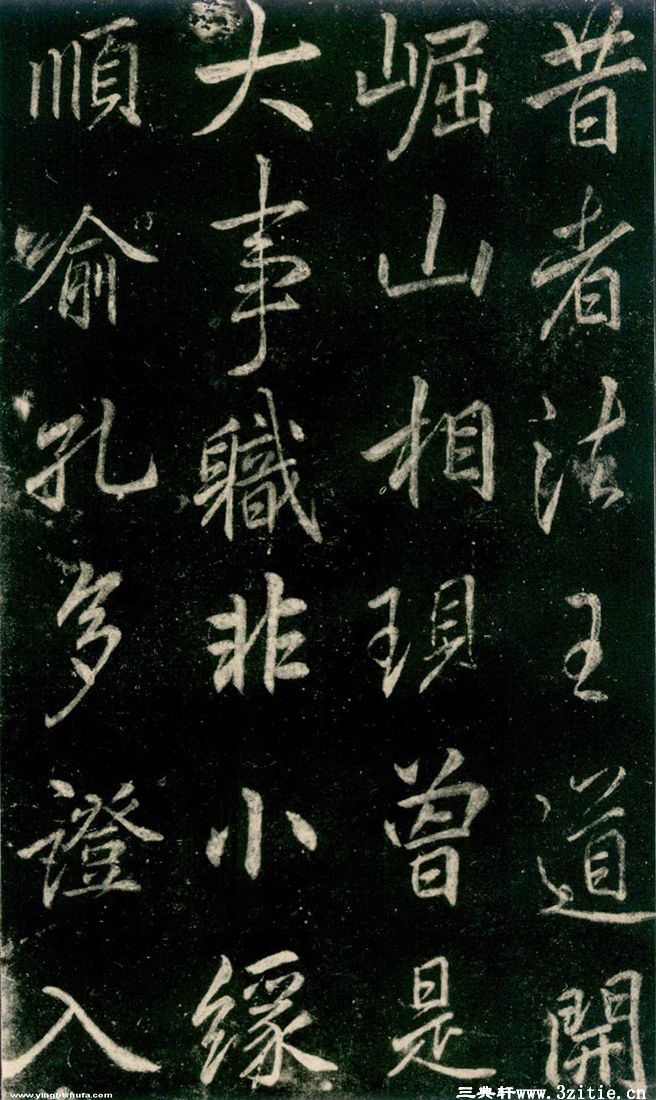 昔者法王道開
崛山相現曾是
大事職非小緣
順喻孔多證入
www.yingbihufa.com
三典轩www.3zitie.cn